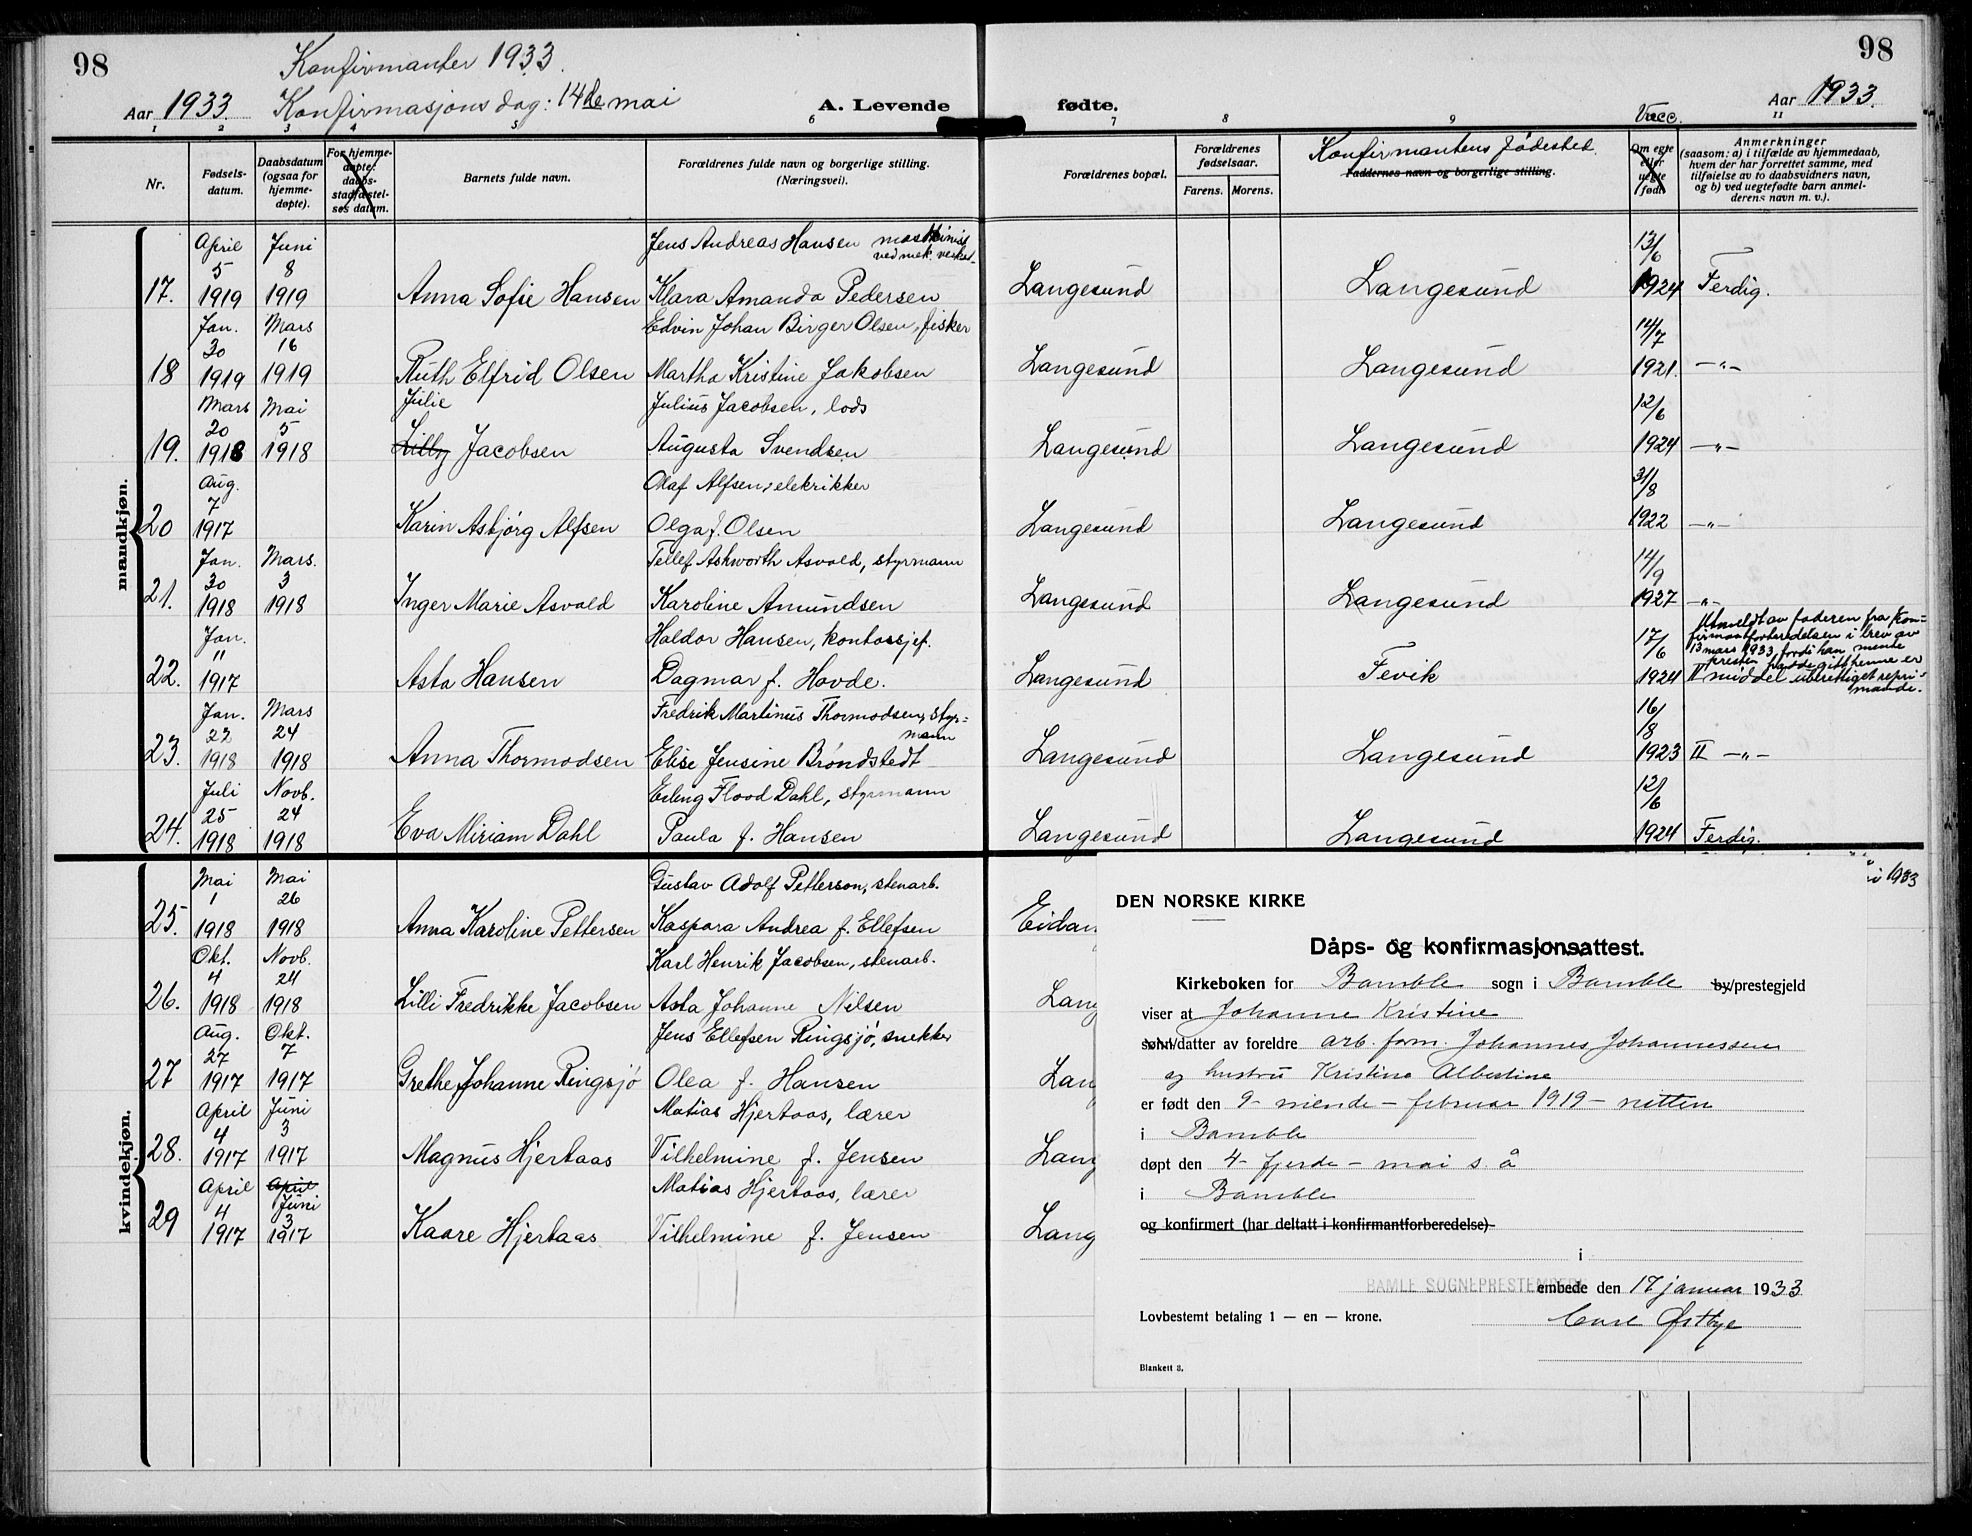 98
Konfirmanter 1933.
98
Aar 1933. Konfirmasjonsdag: 14de mai
A. Levende fødte.
Aar 1933.
1 2 3 4 5 6 7 8 9 Vacc. 11
Nr.
Fødsels-
datum.
Daabsdatum
(ogsaa for
hjemme-
døpte).
For hjemme-
døpte:
daabs-
stadfæstel-
ses datum.
Barnets fulde navn.
Forældrenes fulde navn og borgerlige stilling.
(Næringsvei).
Forældrenes bopæl.
Forældrenes
fødselsaar.
Farens. Morens.
Konfirmantens fødested.
Faddernes navn og borgerlige stilling.
Om egte
eller
uegte
født.
Anmerkninger
(saasom: a) i tilfælde av hjemmedaab,
hvem der har forrettet samme, med
tilføielse av to daabsvidners navn,
og b) ved uegtefødte barn anmel-
derens navn m. v.).
mandkjøn.
April Juni Jens Andreas Hansen maskinist 13/6
5 8 ved mek. verkst.
17. 1919 1919 Anna Sofie Hansen Klara Amanda Pedersen Langesund Langesund 1924 Ferdig.
Jan. Mars Edvin Johan Birger Olsen, fisker 14/7
30 16
18 1919 1919 Ruth Elfrid Olsen Martha Kristine Jakobsen Langesund Langesund 1921. —"—
Mars Mai Julie Julius Jacobsen, lods 12/6
20 5
19. 1918 1918 Lilly Jacobsen Augusta Svendsen Langesund Langesund 1924 —"—
Aug. Olaf Alfsen, elekrikker 31/8
7
20 1917 Karin Asbjørg Alfsen Olga f. Olsen Langesund Langesund 1922 —"—
Jan. Mars. Tellef Ashworth Asvald, styrmann 14/9
30 3
21. 1918 1918 Inger Marie Asvald Karoline Amundsen Langesund Langesund 1927 —"—
Jan. Haldor Hansen, kontorsjef. 17/6 Utmeldt av faderen fra kon=
firmantforberedelsen i brev av
11 13 mars 1933, fordi han mente
presten hadde gitt henne er
22. 1917 Asta Hansen Dagmar f. Hovde. Langesund Fevik 1924 II middel uberettiget repri-
mande.
Jan. Mars Fredrik Martinus Thormodsen, styr= 16/8
22 24 mann
23. 1918 1918 Anna Thormodsen Elise Jensine Brøndstedt Langesund Langesund 1923 II —"—
Juli Novb. Erling Flood Dahl, styrmann 12/6
25 24
24. 1918 1918 Eva Miriam Dahl Paula f. Hansen Langesund Langesund 1924 Ferdig.
kvindekjøn.
Mai Mai Gustav Adolf Petterson, stenarb. i 1933
1 26
25. 1918 1918 Anna Karoline Pettersen Kaspara Andrea f. Ellefsen Eidan
Okt. Novb. Karl Henrik Jacobsen, stenarb.
4 24
26. 1918 1918 Lilli Fredrikke Jacobsen Asta Johanne Nilsen Lang
Aug. Okt. Jens Ellefsen Ringsjø, snekker
27 7
27 1917 1917 Grethe Johanne Ringsjø Olea f. Hansen Lang
April Juni Matias Hjertaas, lærer
4 3
28. 1917 1917 Magnus Hjertaas Vilhelmine f. Jensen Lang
April April Matias Hjertaas, lærer
4 Juni 3
29 1917 1917 Kaare Hjertaas Vilhelmine f. Jensen Lang
DEN NORSKE KIRKE
Dåps- og konfirmasjonsattest.
Kirkeboken for Bamble sogn i Bamble by/prestegjeld
viser at Johanne Kristine
sønn/datter av foreldre arb. form. Johannes Johannessen
og hustru Kristine Albertine
er født den 9- niende - februar 1919 - nitten
i Bamble
døpt den 4- fjerde - mai s. å
i Bamble
og konfirmert (har deltatt i konfirmantforberedelse)
i
BAMLE SOGNEPRESTEMBEDE embede den 17 januar 1933
Lovbestemt betaling 1 — en — krone. Carl Østbye
Blankett 8.